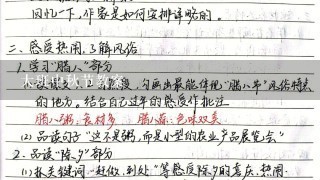 回忆一下,作家是如何安排详略的。
二、感受热闹,了解风俗
1.学习“腊八”部分
勾画出最能体现“腊八节”风俗特点
的地方。结合自己过年的感受作批注
腊八粥:食材多 腊八蒜:色味双美
(2)品读句子“这不是粥,而是小型的农业产品展览会”
2.品读“除夕”部分
(1)抓关键词“赶做、到处”等感受除夕的喜庆、热闹.